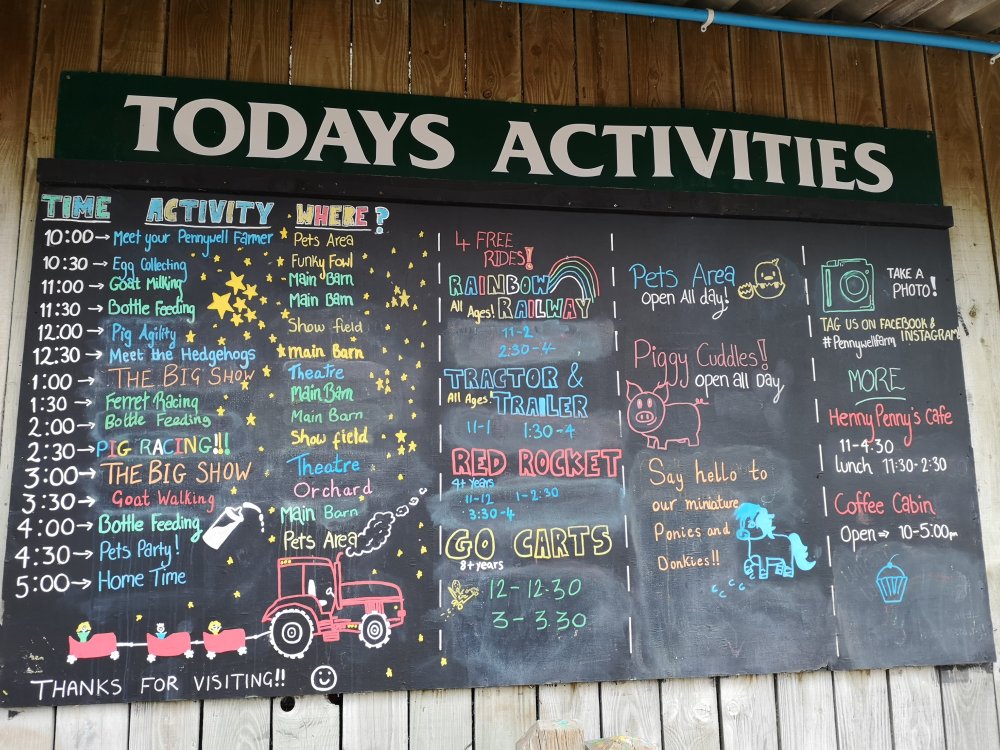 TODAYS ACTIVITIES
TIME ACTIVITY WHERE?
10:00→ Meet your Pennywell Farmer Pets Area
10:30→ Egg Collecting Funky Fowl
11:00→ Goat Milking Main Barn
11:30→ Bottle Feeding Main Barn
12:00→ Pig Agility Show field
12:30→ Meet the Hedgehogs Main Barn
1:00→ THE BIG SHOW Theatre
1:30→ Ferret Racing Main Barn
2:00→ Bottle Feeding Main Barn
2:30→ PIG RACING!!! Show field
3:00→ THE BIG SHOW Theatre
3:30→ Goat Walking Orchard
4:00→ Bottle Feeding Main Barn
4:30→ Pets Party! Pets Area
5:00→ Home Time
THANKS FOR VISITING!!
4 FREE
RIDES!
RAINBOW
All Ages! RAILWAY
11-2
2:30-4
TRACTOR &
All Ages! TRAILER
11-1 1:30-4
RED ROCKET
4+ years
11-12 1-2:30
3:30-4
GO CARTS
8+ years
12-12.30
3-3.30
Pets Area
open All day!
Piggy Cuddles!
open all day
Say hello to
our miniature
Ponies and
Donkies!!
TAKE A
PHOTO!
TAG US ON FACEBOOK &
#Pennywellfarm INSTAGRAM
MORE
Henny Penny's Cafe
11-4.30
lunch 11:30-2:30
Coffee Cabin
Open⇒ 10-5:00pm